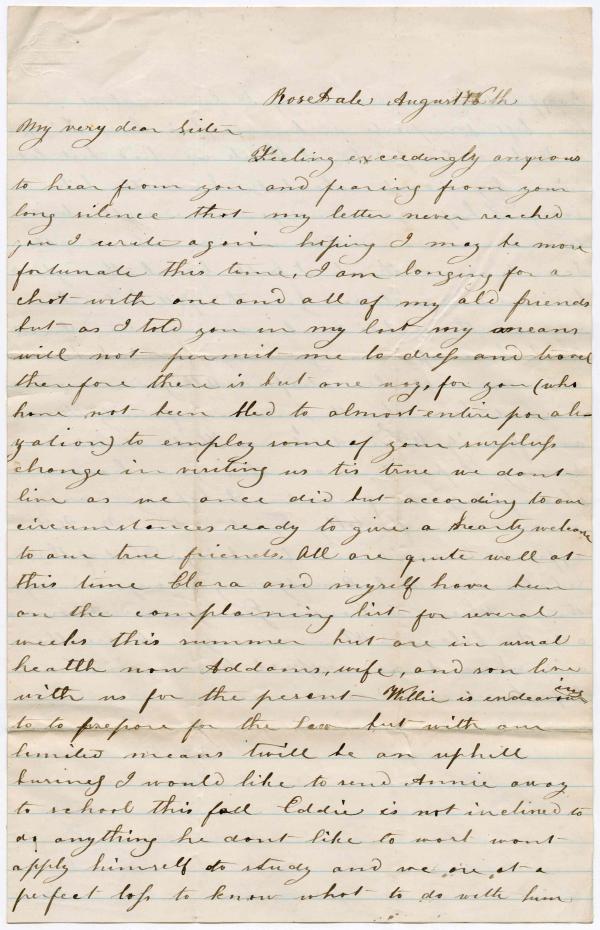 Rosedale August 16th
My very dear Sister
Feeling exceedingly anxious
to hear from you and fearing from your
long silence that my letter never reached
you I write again hoping I may be more
fortunate this time, I am longing for a
chat with one and all of my old friends
but as I told you in my last my means
will not permit me to dress and travel
therefore there is but one way, for you (who
have not been bled to almost entire paral-
yzation) to employ some of your surpluss
change in visiting us tis true we dont
live as we once did but according to our
circumstances ready to give a hearty welcome
to our true friends. All are quite well at
this time Clara and myself have been
on the complaining list for several
weeks this summer but are in usual
health now Addams, wife, and son live
with us for the present Willie is endeavoring
to to prepare for the law but with our
limited means twill be an uphill
business I would like to send Annie away
to school this fall Eddie is not inclined to
do anything he dont like to work wont
apply himself to study and we are at a
perfect loss to know what to do with him